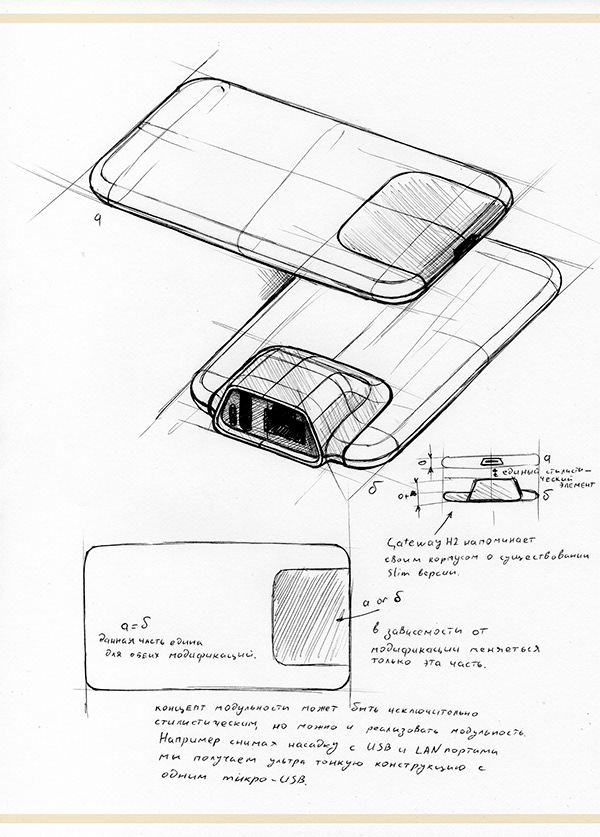 а
б
а
единый стилисти-
ческий
элемент
б
Gateway H2 напоминает
своим корпусом о существовании
Slim версии.
a or б
а = б
данная часть едина
для обеих модификаций.
в зависимости от
модификации меняеться
только эта часть.
концепт модульности может быть исключительно
стилистическим, но можно и реализовать модульность.
Например снимая насадку с USB и LAN портами
мы получаем ультра тонкую конструкцию с
одним микро-USB.